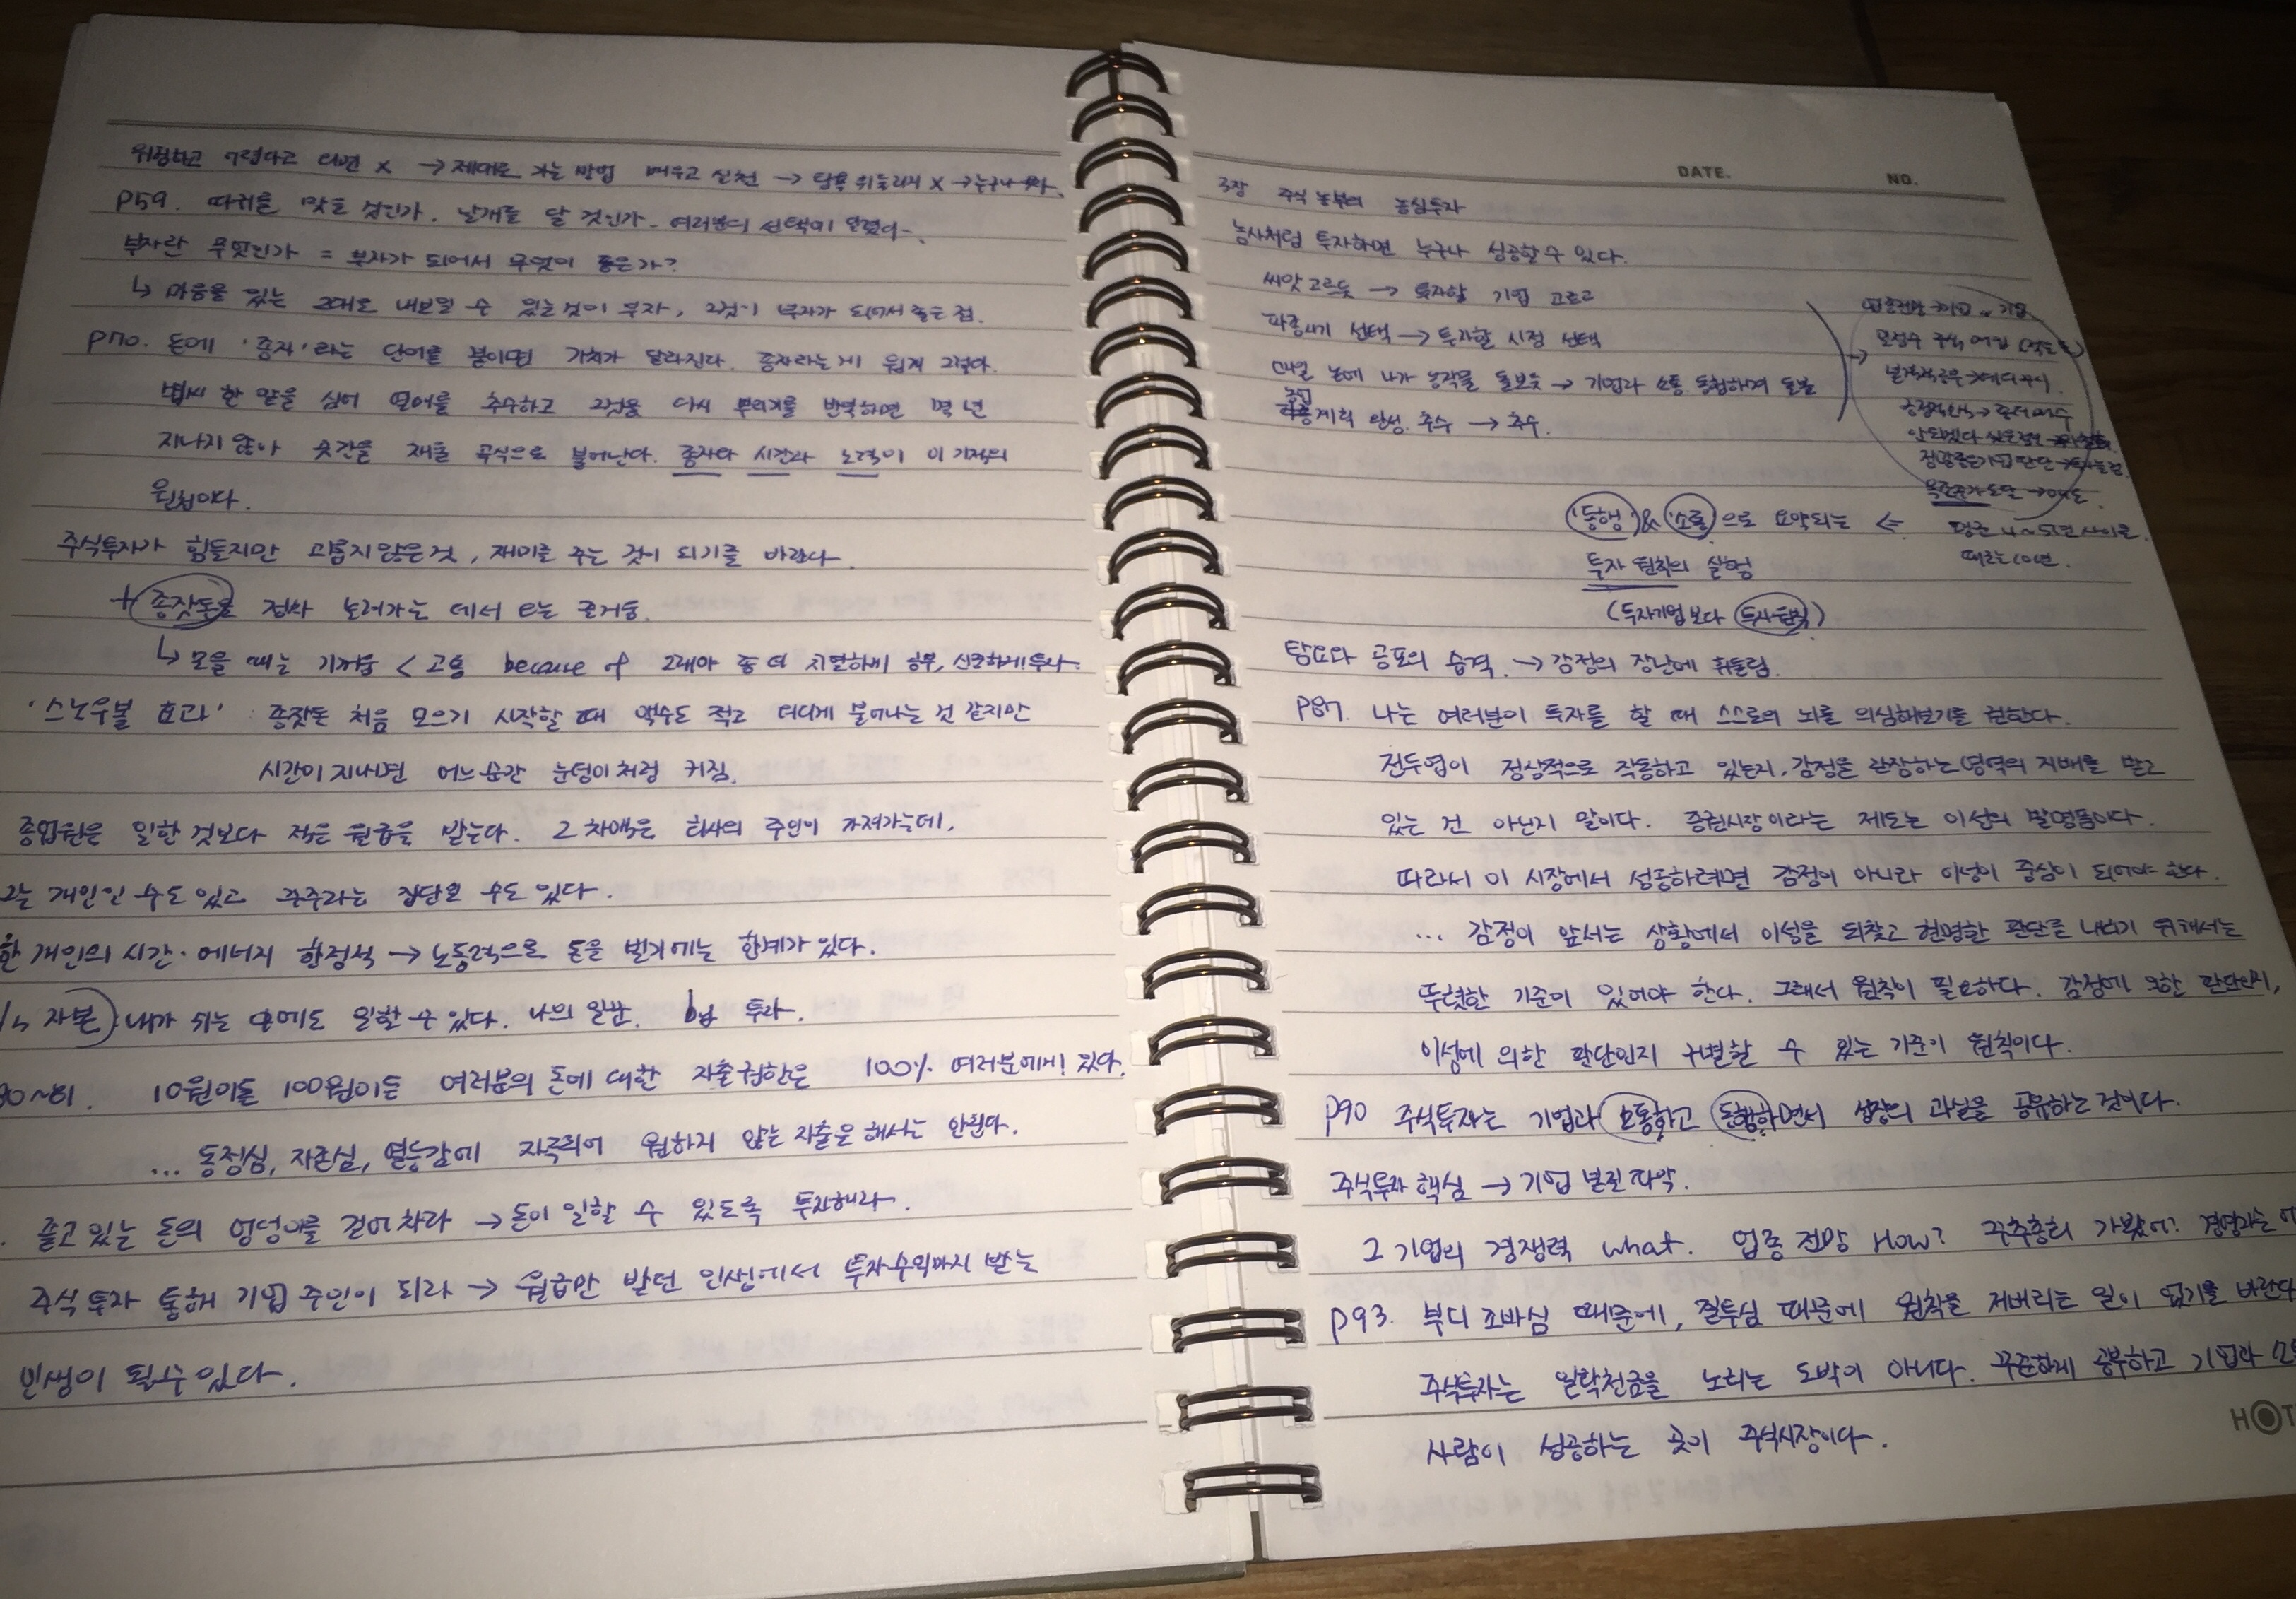 위험하고 어렵다고 외면 X → 제대로 가는 방법 배우고 실천 → 탐욕 휘둘리지 X → 누구나 부자.
P59. 따귀를 맞을 것인가. 날개를 달 것인가. 여러분의 선택에 달렸다.
부자란 무엇인가 = 부자가 되어서 무엇이 좋은가?
↳ 마음을 있는 그대로 내보일 수 있는 것이 부자, 그것이 부자가 되어서 좋은 점.
P70. 돈에 '종자'라는 단어를 붙이면 가치가 달라진다. 종자라는 게 원래 그렇다.
볍씨 한 알을 심어 열매를 추수하고 그것을 다시 뿌리기를 반복하면 몇 년
지나지 않아 곳간을 채울 곡식으로 불어난다. 종자와 시간과 노력이 이 기적의
원천이다.
주식투자가 힘들지만 괴롭지 않은 것, 재미를 주는 것이 되기를 바란다.
+ 종잣돈을 점차 늘려가는 데서 오는 즐거움.
↳ 모을 때는 기꺼움 < 고통 because of 그래야 좀 더 치열하게 공부, 신중하게! 투자.
'스노우볼 효과' 종잣돈 처음 모으기 시작할 때 액수도 적고 더디게 불어나는 것 같지만
시간이 지나면 어느순간 눈덩이처럼 커짐.
종업원은 일한 것보다 적은 월급을 받는다. 그 차액은 회사의 주인이 가져가는데,
그는 개인일 수도 있고 주주라는 집단일 수도 있다.
한 개인의 시간·에너지 한정적 → 노동력으로 돈을 벌기에는 한계가 있다.
↳ 자본 : 내가 쉬는 중에도 일할 수 있다. 나의 일꾼. by 투자.
80~81. 10원이든 100원이든 여러분의 돈에 대한 지출권한은 100% 여러분에게! 있다.
... 동정심, 자존심, 열등감에 자극되어 원하지 않는 지출은 해서는 안된다.
졸고 있는 돈의 엉덩이를 걷어차라 → 돈이 일할 수 있도록 투자해라.
주식투자 통해 기업 주인이 되라 → 월급만 받던 인생에서 투자수익까지 받는
인생이 될 수 있다.
DATE. NO.
3장 주식 농부의 농심투자
농사처럼 투자하면 누구나 성공할 수 있다.
씨앗 고르듯 → 투자할 기업 고르고
파종시기 선택 → 투자할 시점 선택
매일 논에 나가 농작물 돌보듯 → 기업과 소통 동행하며 돌봄
농업
계획 완성. 추수 → 추수.
관심적 공유 →
긍정적 인식 →
안되겠다 싶으면
목표주가 도달 → 매도
평균 4~5년 사이클.
때로는 10년.
'동행' & '소통' 으로 요약되는 ⇐
투자 원칙의 실행
(투자기업보다 투자원칙)
탐욕와 공포의 습격. → 감정의 장난에 휘둘림.
P87. 나는 여러분이 투자를 할 때 스스로의 뇌를 의심해보기를 권한다.
전두엽이 정상적으로 작동하고 있는지, 감정을 관장하는 영역의 지배를 받고
있는 건 아닌지 말이다. 증권시장이라는 제도는 이성의 발명품이다.
따라서 이 시장에서 성공하려면 감정이 아니라 이성이 중심이 되어야 한다.
... 감정이 앞서는 상황에서 이성을 되찾고 현명한 판단을 내리기 위해서는
뚜렷한 기준이 있어야 한다. 그래서 원칙이 필요하다. 감정에 의한 판단인지,
이성에 의한 판단인지 구별할 수 있는 기준이 원칙이다.
P90 주식투자는 기업과 소통하고 동행하면서 성장의 과실을 공유하는 것이다.
주식투자 핵심 → 기업 본질 파악.
그 기업의 경쟁력 what. 업종 전망 How? 주주총회 가봤어? 경영자는
P93. 부디 조바심 때문에, 질투심 때문에 원칙을 저버리는 일이 없기를 바란다
주식투자는 일확천금을 노리는 도박이 아니다. 꾸준하게 공부하고 기업과
사람이 성공하는 곳이 주식시장이다.